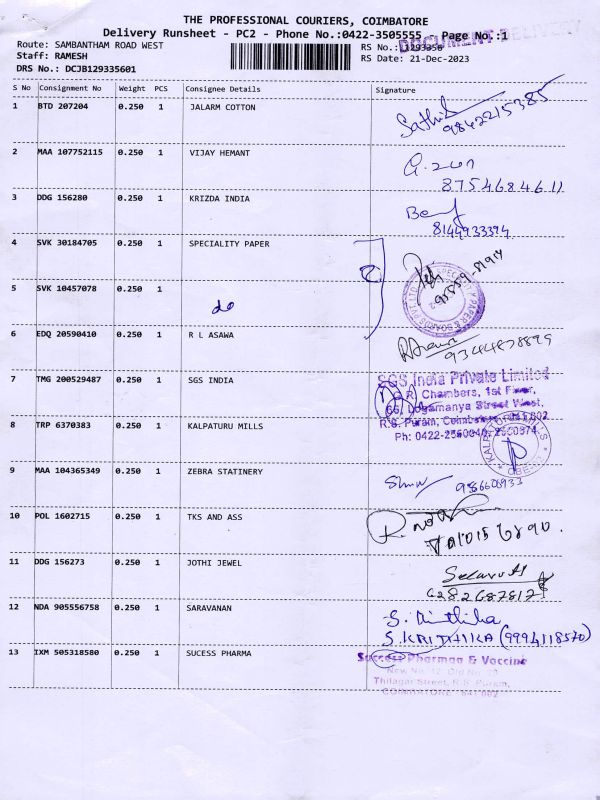 THE PROFESSIONAL COURIERS, COIMBATORE
Delivery Runsheet - PC2 - Phone No.:0422-3505555 - Page No.:1
DOCUMENT DELIVERY
Route: SAMBANTHAM ROAD WEST
RS No.: 1293356
Staff: RAMESH
RS Date: 21-Dec-2023
DRS No.: DCJB129335601
S No Consignment No Weight PCS Consignee Details Signature
1 BTD 207204 0.250 1 JALARM COTTON
9842215385
2 MAA 107752115 0.250 1 VIJAY HEMANT
8754684611
3 DDG 156280 0.250 1 KRIZDA INDIA
8144933394
4 SVK 30184705 0.250 1 SPECIALITY PAPER
5 SVK 10457078 0.250 1 do
6 EDQ 20590410 0.250 1 R L ASAWA
9344478899
7 TMG 200529487 0.250 1 SGS INDIA
SGS India Private Limited
Chambers, 1st Floor,
Logamanya Street West,
R.S. Puram, Coimbatore
Ph: 0422-2560048, 2560574
8 TRP 6370383 0.250 1 KALPATURU MILLS
9 MAA 104365349 0.250 1 ZEBRA STATINERY
10 POL 1602715 0.250 1 TKS AND ASS
11 DDG 156273 0.250 1 JOTHI JEWEL
12 NDA 905556758 0.250 1 SARAVANAN
S. KRITHIKA (9994118570)
13 IXM 505318580 0.250 1 SUCESS PHARMA
Success Pharman & Vaccine
Thilagar Street, R.S. Puram,
COIMBATORE - 641 002